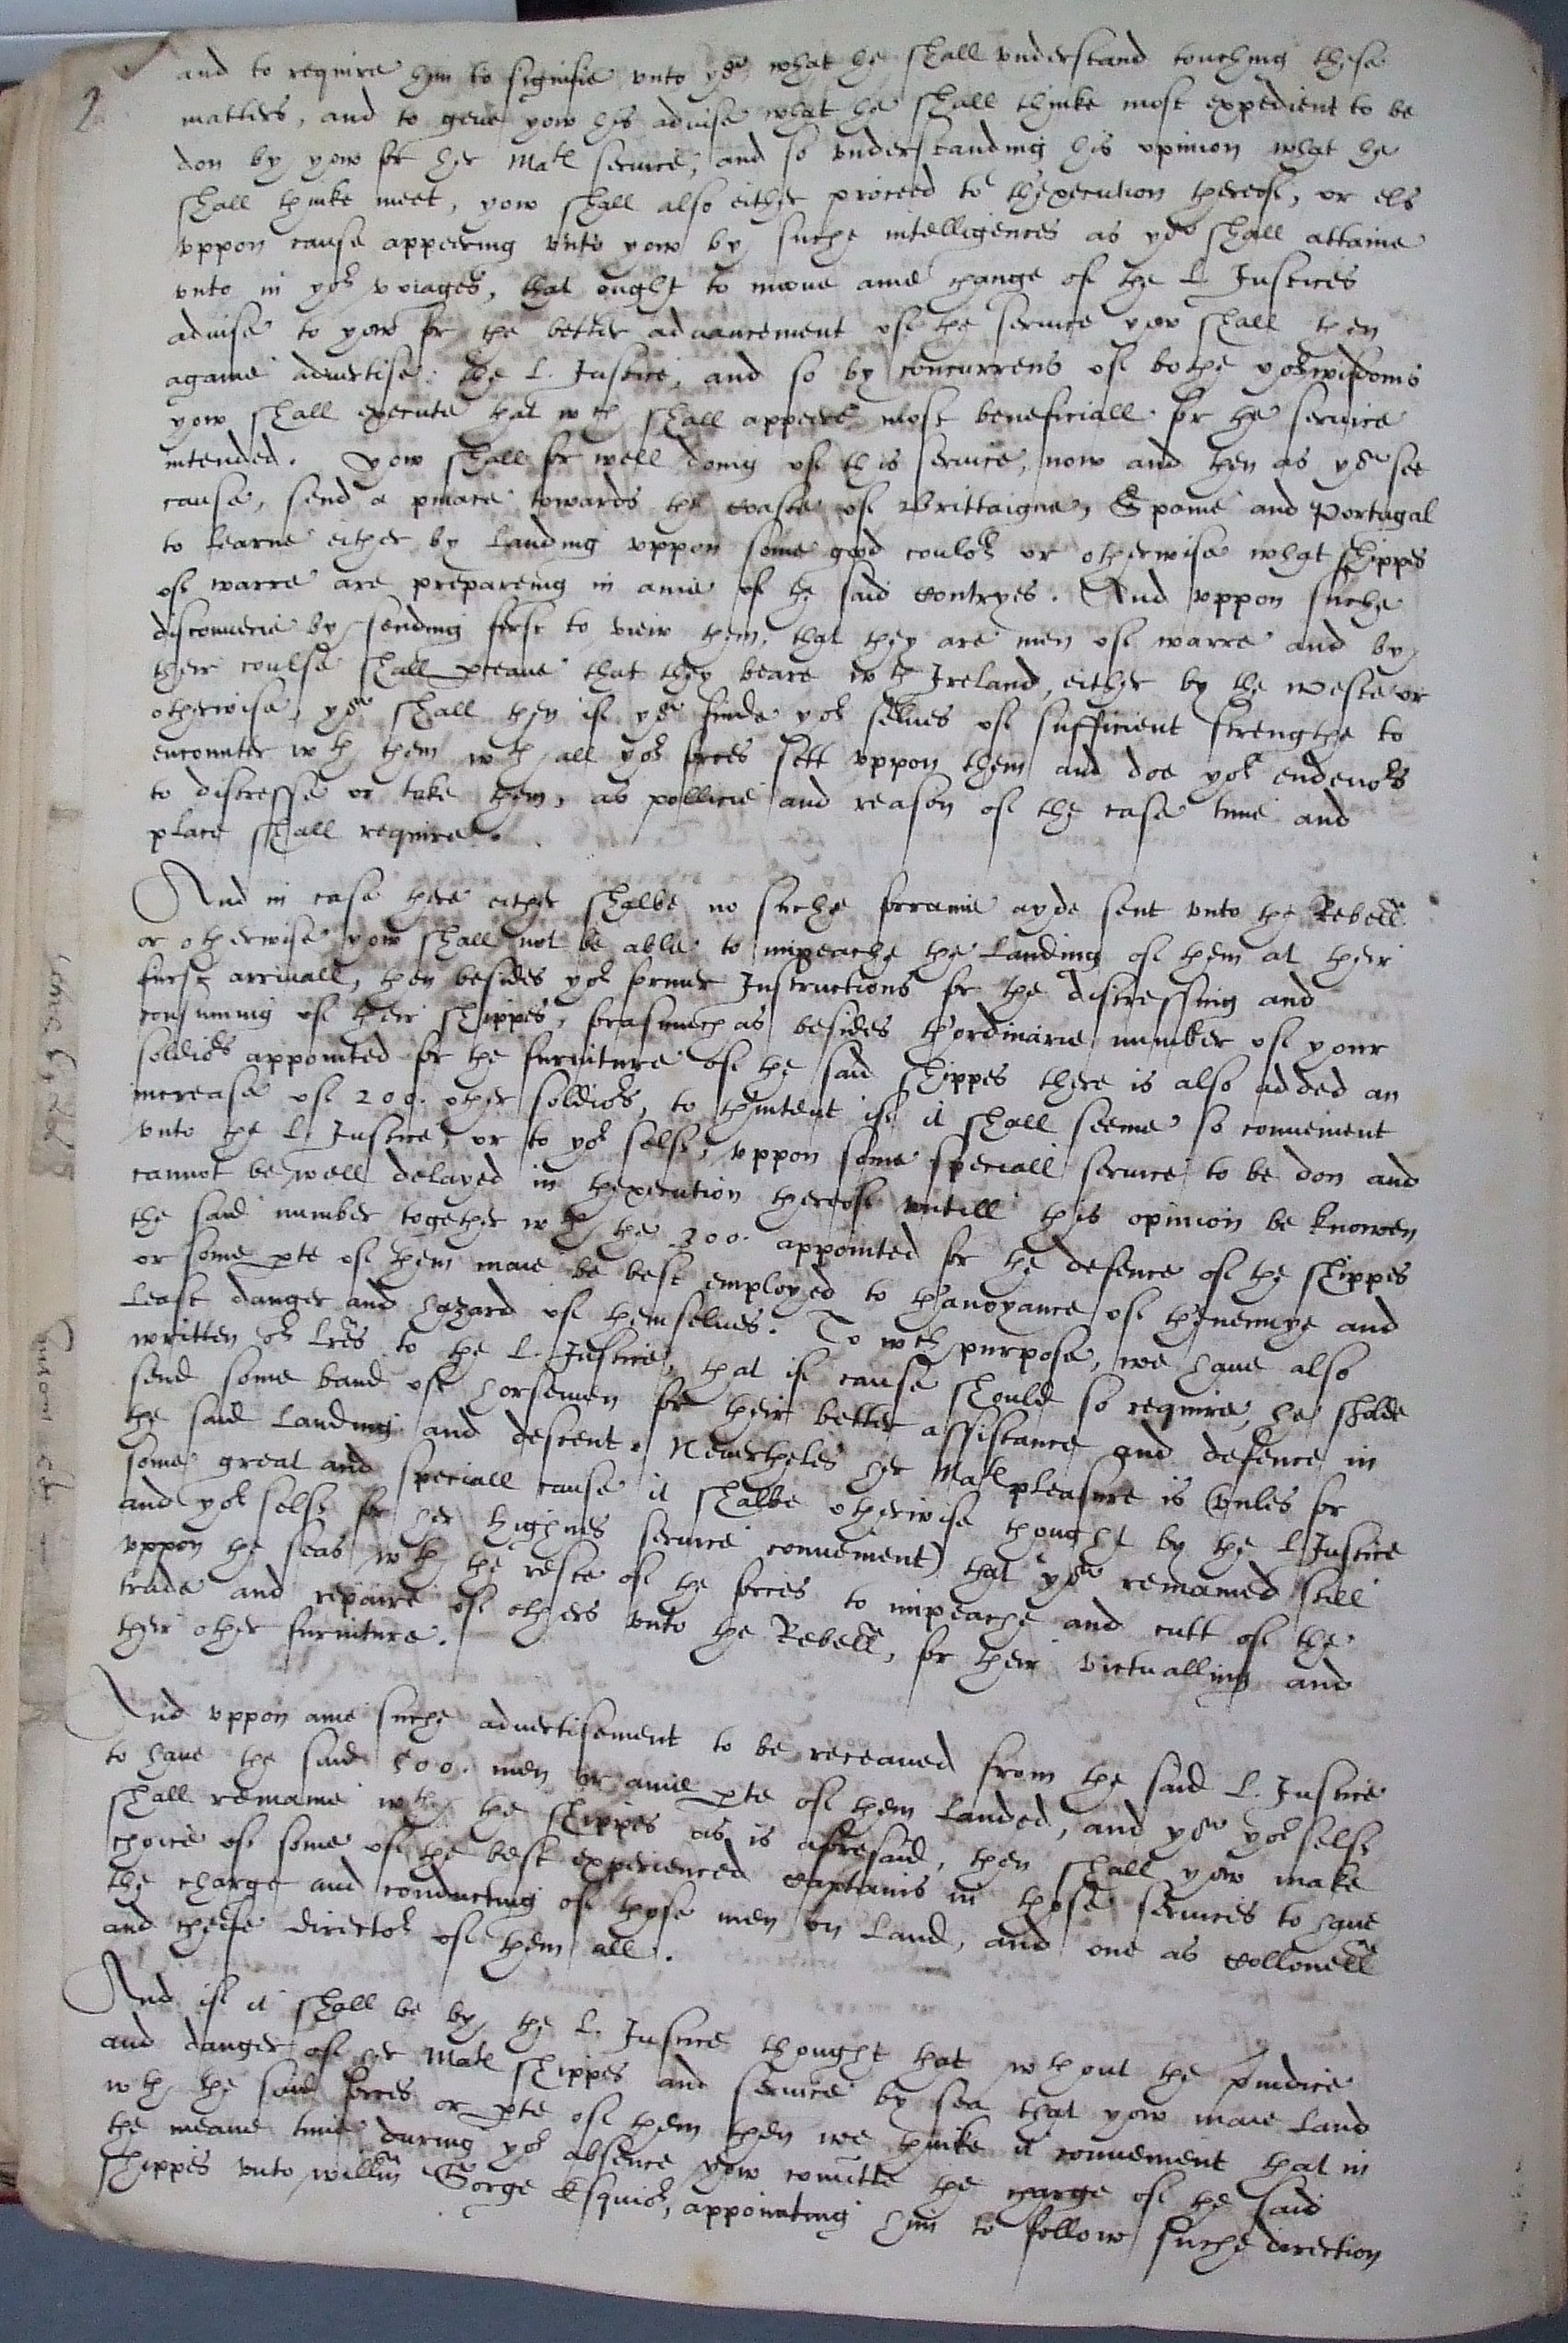 2
and to require him to signifie unto yow what he shall understand touching these
matters, and to geue yow his aduise what he shall thinke most expedient to be
don by yow for her Matie seruice, and so understanding his opinion what he
shall thinke meet, yow shall also either proceed to thexecution thereof, or els
vppon cause appeering vnto yow by suche intelligences as yow shall attaine
vnto in yor voiages, that ought to moue anie change of the L. Justices
aduise to yow for the better aduauncement of the seruice yow shall then
againe aduertise the L. Justice, and so by concurrens of bothe yor wisdoms
yow shall execute that wch shall appeere most beneficiall for the seruice
intended. Yow shall for well doing of this seruice, now and then as yow see
cause, send a pinace towards the coaste of Brittaigne, Spaine and Portugal
to learne either by landing vppon some good coulor or otherwise what shippes
of warre are prepareing in anie of the said contryes. And vppon suche
discouerie by sending first to view them, that they are men of warre and by
their course shall pceaue that they beare wth Ireland, either by the weste or
otherwise, yow shall then if yow finde yor selues of sufficient strengthe to
encounter wth them wth all yor forces sett vppon them and doe yor endeuors
to distresse or take them, as pollicie and reason of the case time and
place shall require.
And in case there either shalbe no suche forraine ayde sent vnto the Rebells
or otherwise yow shall not be able to impeache the landing of them at their
furst arriuall, then besides yor former Instructions for the distressing and
consuming of their shippes, forasmuch as besides thordinarie number of your
soldiors appointed for the furniture of the said shippes there is also added an
increase of 200. other soldiors, to thintent if it shall seeme so conuenient
vnto the L. Justice, or to yor self, vppon some speciall seruice to be don and
cannot be well delayed in thexecution thereof vntill his opinion be knowen
the said number together wth the 300. appointed for the defence of the shippes
or some pte of them maie be best employed to thanoyance of thenemye and
least danger and hazard of themselues. To wch purpose, we haue also
written or lres to the L. Justice, that if cause should so require, he sholde
send some band of horsemen for their better assistance and defence in
the said landing and descent. Neuertheles her Matie pleasure is (vnles for
some great and speciall cause it shalbe otherwise thought by the L Justice
and yor self for her highnes seruice conuenient) that yow remained still
vppon the seas wth the reste of the forces to impeache and cutt of the
trade and repaire of others vnto the Rebells, for their victualling and
their other furniture.
And vppon anie suche aduertisement to be receaued from the said L. Justice
to haue the said 500. men or anie pte of them landed, and yow yor self
shall remaine wth the shippes as is aforesaid, then shall yow make
choice of some of the best experienced Captains in those seruices to haue
the charge and conducting of those men on land, and one as Collonell
and cheife director of them all.
And if it shall be by the L. Justice thought that wthout the preiudice
and danger of her Matie shippes and seruice by sea that yow maie land
wth the said forces or pte of them then we thinke it conuenient that in
the meane time during yor absence yow comitte the charge of the said
shippes vnto Willm Gorge Esquior, appointing him to follow suche direction